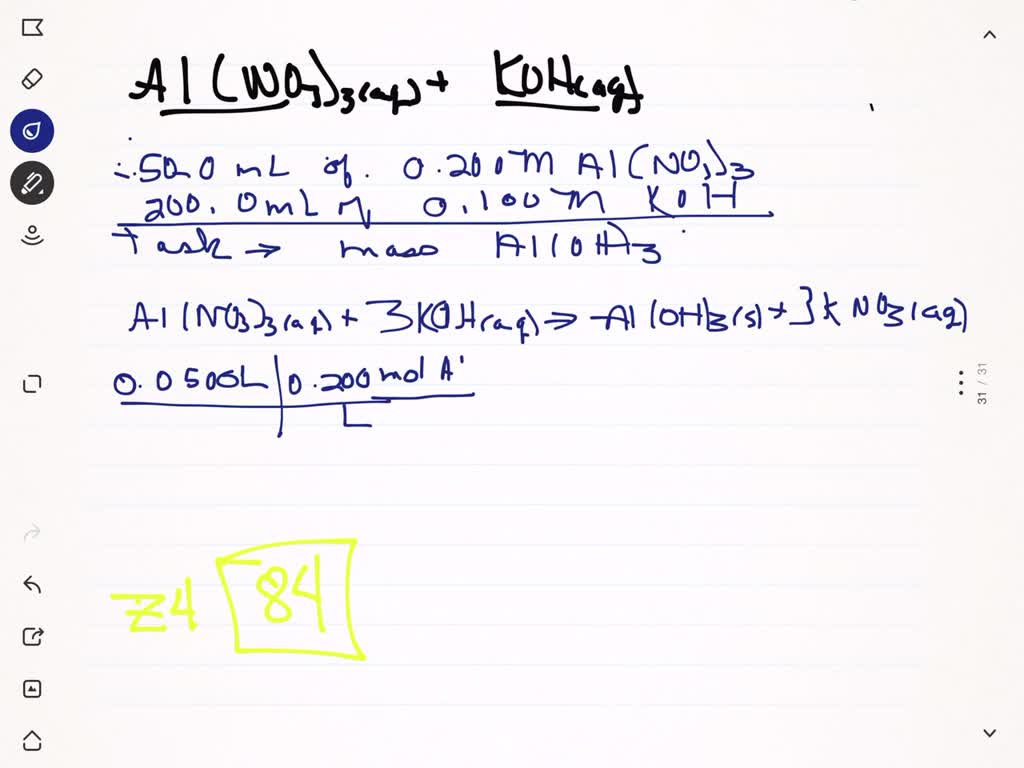 Al(NO3)3(aq) + KOH(aq)
50.0 mL of 0.200 M Al(NO3)3
200.0mL of 0.100 M KOH
Task → mass Al(OH)3
Al(NO3)3(aq) + 3KOH(aq) → Al(OH)3(s) + 3KNO3(aq)
0.0500L | 0.200 mol Al
L
31 / 31
Z4 84